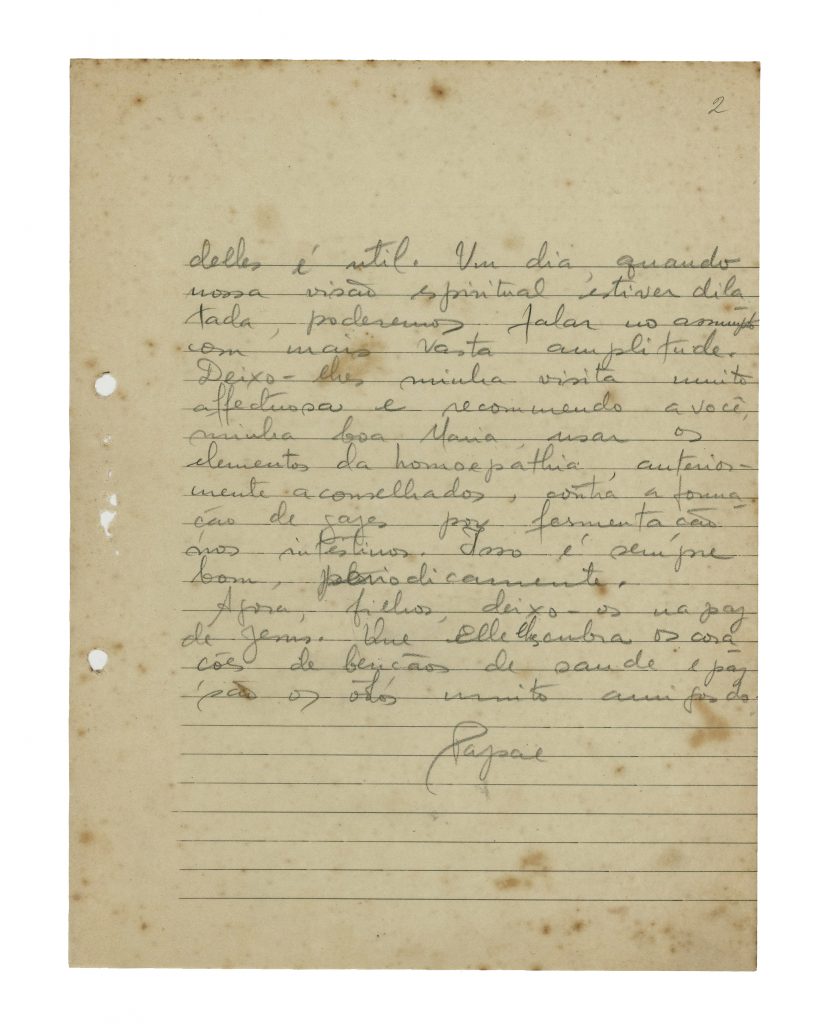 2
delles é util. Um dia, quando
nossa visão espiritual estiver dila
tada, poderemos falar no assumpto
com mais vasta amplitude.
Deixo-lhes minha visita muito
affectuosa e recommendo a você,
minha boa Maria, usar os
elementos da homoepathia, anterior-
mente aconselhados, contra a forma
ção de gazes por fermentação
nos intestinos. Isso é sempre
bom, periodicamente.
Agora, filhos, deixo-os na paz
de Jesus. Que Elle lhes cubra os cora
ções de bençãos de saude e paz
são os muito amigos do
Papae